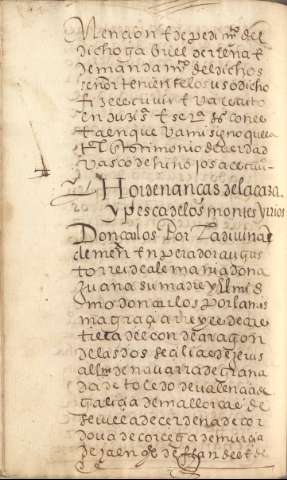 mención e de pedi mo del
dicho gabiel de reña e
demanda mo del dicho s
señor teniente lo suso dicho
fize escrevir e va cierto
en
e a en que va mi signo que va
en testimonio de verdad
vasco de hinojosa escriv
Hordenanças de la caza
y pesca de los montes y rios
Don carlos Por la divina
clemen enperador augus
to rrei de alemania doña
Juana su madre y el mis
mo don carlos por la mis
ma graçia rreyes de cas
tilla de leon de aragon
de las dos seçilias de jerus
allm de navarra de grana
da de toledo de valençia de
galizia de mallorcas de
sevilla de cerdena de cor
dova de corcega de murçia
de jaen de